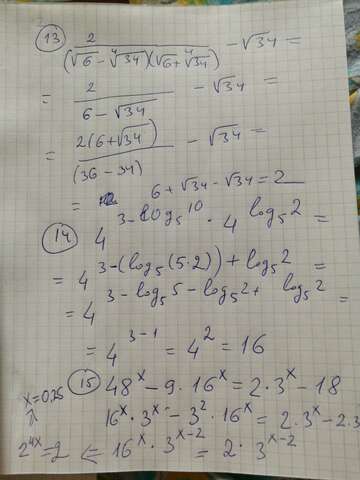 13) 2 / ((√6 - ⁴√34)(√6 + ⁴√34)) - √34 =
= 2 / (6 - √34) - √34 =
= 2(6+√34) / (36 - 34) - √34 =
= 6 + √34 - √34 = 2
14) 4^(3-log₅10) · 4^(log₅2) =
= 4^(3-(log₅(5·2))+log₅2) =
= 4^(3-log₅5-log₅2+log₅2) =
= 4^(3-1) = 4² = 16
15) 48^x - 9·16^x = 2·3^x - 18
x=0.25 16^x · 3^x - 3² · 16^x = 2·3^x - 2·3
⇑
2^(4x) = 2 ⇐ 16^x · 3^(x-2) = 2 · 3^(x-2)